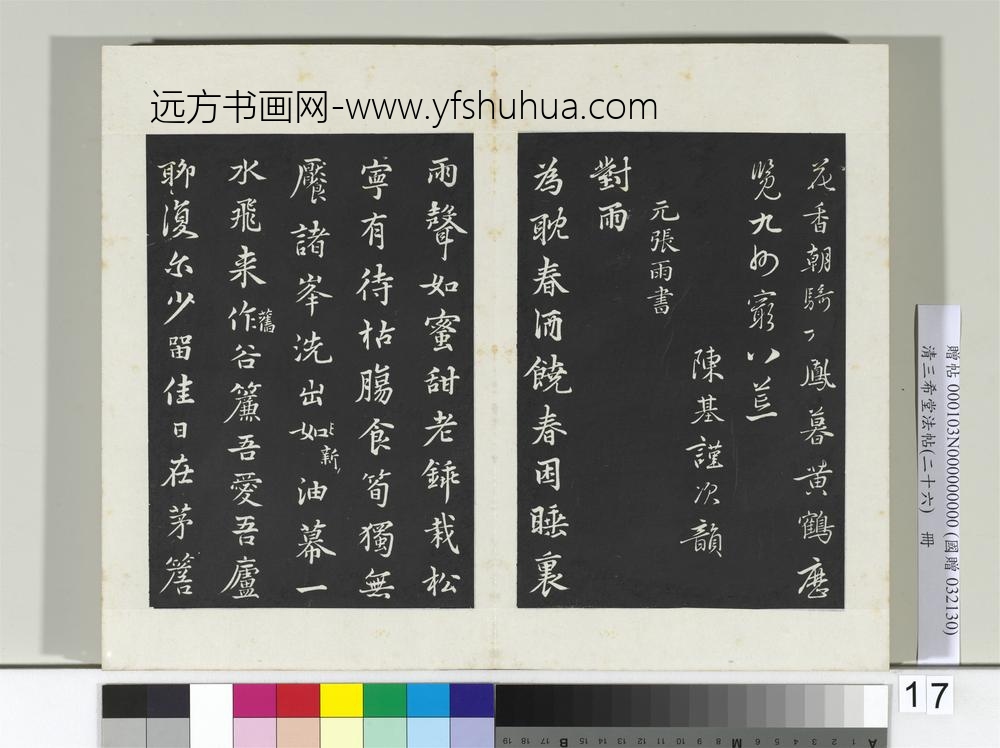 远方书画网-www.yfshuhua.com
花香朝騎丁鳳暮黄鶴歷
覽九州窮八荒
陳基謹次韻
元張雨書
對雨
為耽春酒饒春困睡裏
雨聲如蜜甜老鉢栽松
寧有待枯腸食筍獨無
饜諸峯洗出如新油幕一
水飛来作舊谷簾吾愛吾廬
聊復尔少留佳日在茅簷
贈帖 000103N000000000 (國贈 032130)
清三希堂法帖(二十六) 冊
17